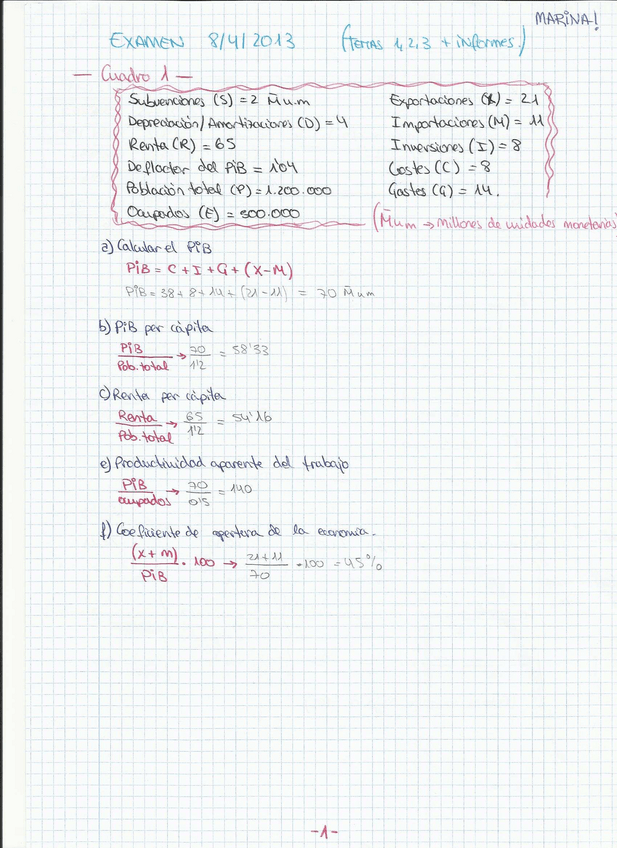 MARINA!
EXAMEN 8/4/2013 (TEMAS 1, 2, 3 + informes)
— Cuadro 1 —
Subvenciones (S) = 2 M̄um Exportaciones (X) = 21
Depreciación/Amortizaciones (D) = 4 Importaciones (M) = 11
Renta (R) = 65 Inversiones (I) = 8
Deflactor del PiB = 1'04 Costes (C) = 8
Población total (P) = 1.200.000 Gastos (G) = 14.
Ocupados (E) = 500.000
(M̄um → Millones de unidades monetarias)
a) Calcular el PiB
PiB = C + I + G + (X-M)
PiB = 38 + 8 + 14 + (21 - 11) = 70 M̄um
b) PiB per cápita
PiB / Pob. total → 70 / 1'2 = 58'33
c) Renta per cápita
Renta / Pob. total → 65 / 1'2 = 54'16
e) Productividad aparente del trabajo
PiB / ocupados → 70 / 0'5 = 140
f) Coeficiente de apertura de la economía.
(x + m) / PiB · 100 → 21 + 11 / 70 · 100 = 45%
-1-